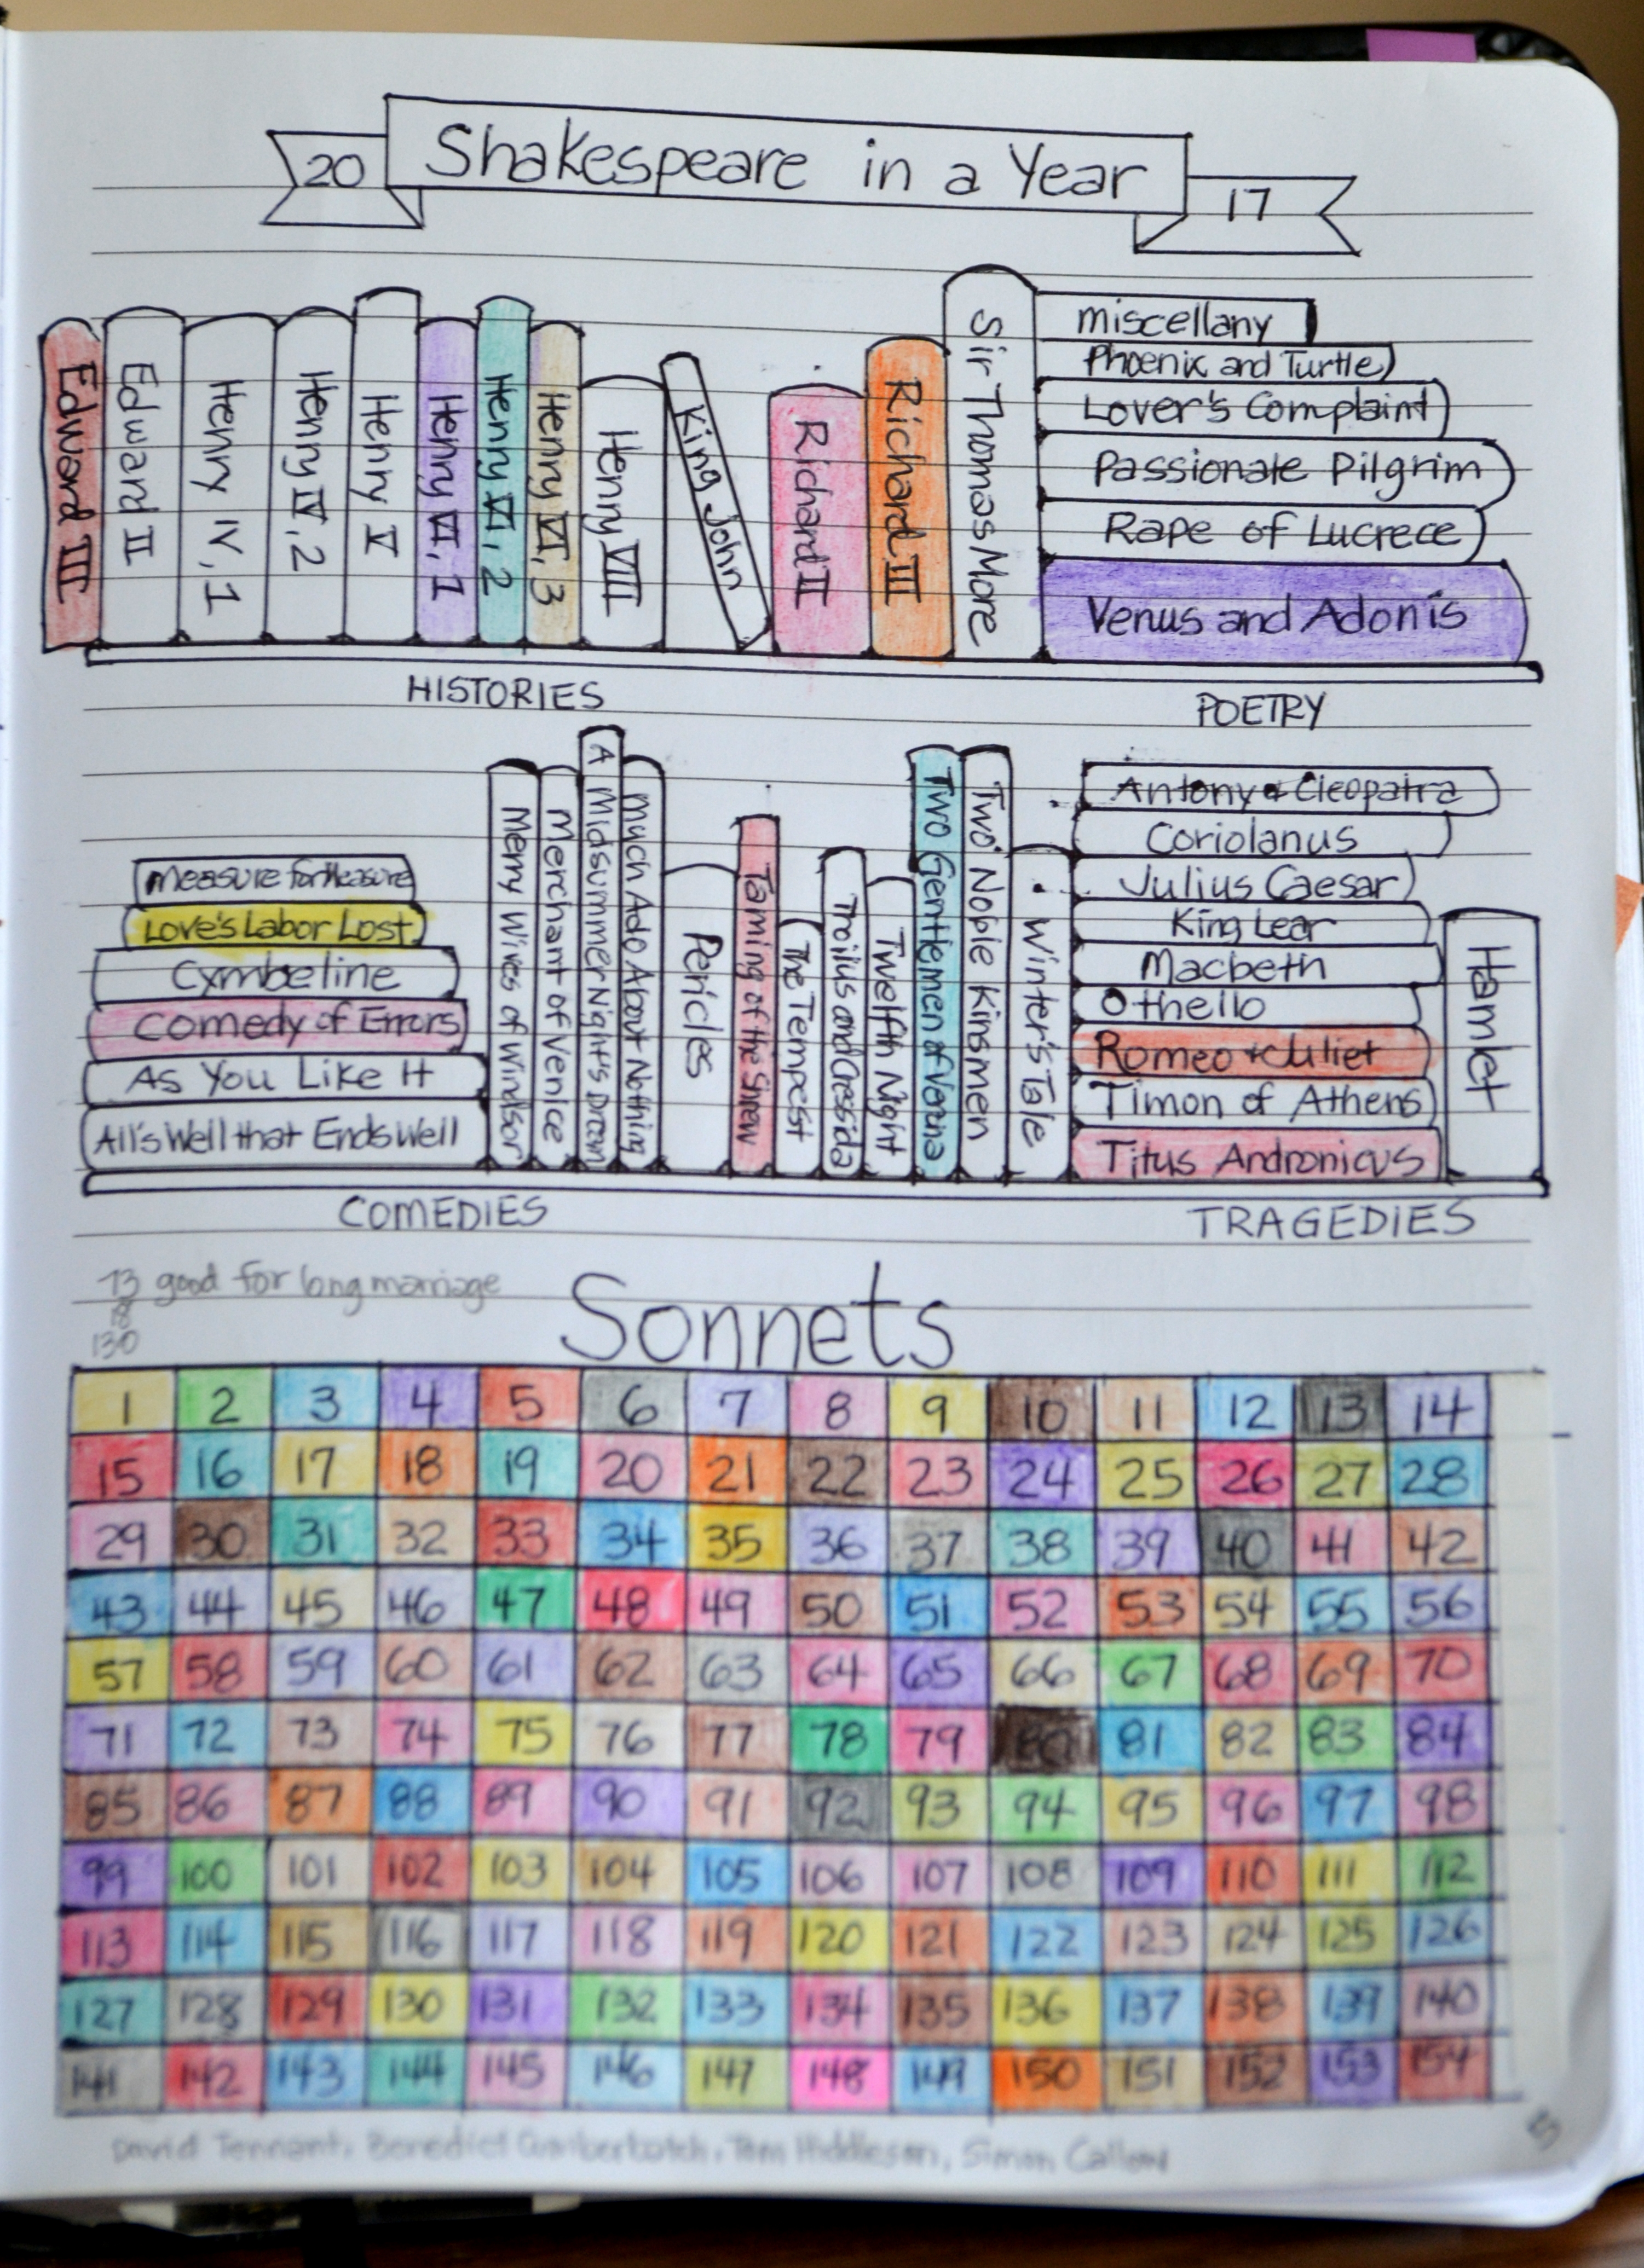 20 Shakespeare in a Year 17
Edward III
Edward II
Henry IV, 1
Henry IV, 2
Henry V
Henry VI, 1
Henry VI, 2
Henry VI, 3
Henry VIII
King John
Richard II
Richard III
Sir Thomas More
miscellany
Phoenix and Turtle
Lover's Complaint
Passionate Pilgrim
Rape of Lucrece
Venus and Adonis
HISTORIES
POETRY
Measure for Measure
Love's Labor Lost
Cymbeline
Comedy of Errors
As You Like It
All's Well that Ends Well
Merry Wives of Windsor
Merchant of Venice
A Midsummer Night's Dream
Much Ado About Nothing
Pericles
Taming of the Shrew
The Tempest
Troilus and Cressida
Twelfth Night
Two Gentlemen of Verona
Two Noble Kinsmen
Winter's Tale
Antony & Cleopatra
Coriolanus
Julius Caesar
King Lear
Macbeth
Othello
Romeo + Juliet
Timon of Athens
Titus Andronicus
Hamlet
COMEDIES
TRAGEDIES
73 good for long marriage
130
Sonnets
1 2 3 4 5 6 7 8 9 10 11 12 13 14
15 16 17 18 19 20 21 22 23 24 25 26 27 28
29 30 31 32 33 34 35 36 37 38 39 40 41 42
43 44 45 46 47 48 49 50 51 52 53 54 55 56
57 58 59 60 61 62 63 64 65 66 67 68 69 70
71 72 73 74 75 76 77 78 79 80 81 82 83 84
85 86 87 88 89 90 91 92 93 94 95 96 97 98
99 100 101 102 103 104 105 106 107 108 109 110 111 112
113 114 115 116 117 118 119 120 121 122 123 124 125 126
127 128 129 130 131 132 133 134 135 136 137 138 139 140
141 142 143 144 145 146 147 148 149 150 151 152 153 154
David Tennant, Benedict Cumberbatch, Tom Hiddleson, Simon Callow
5